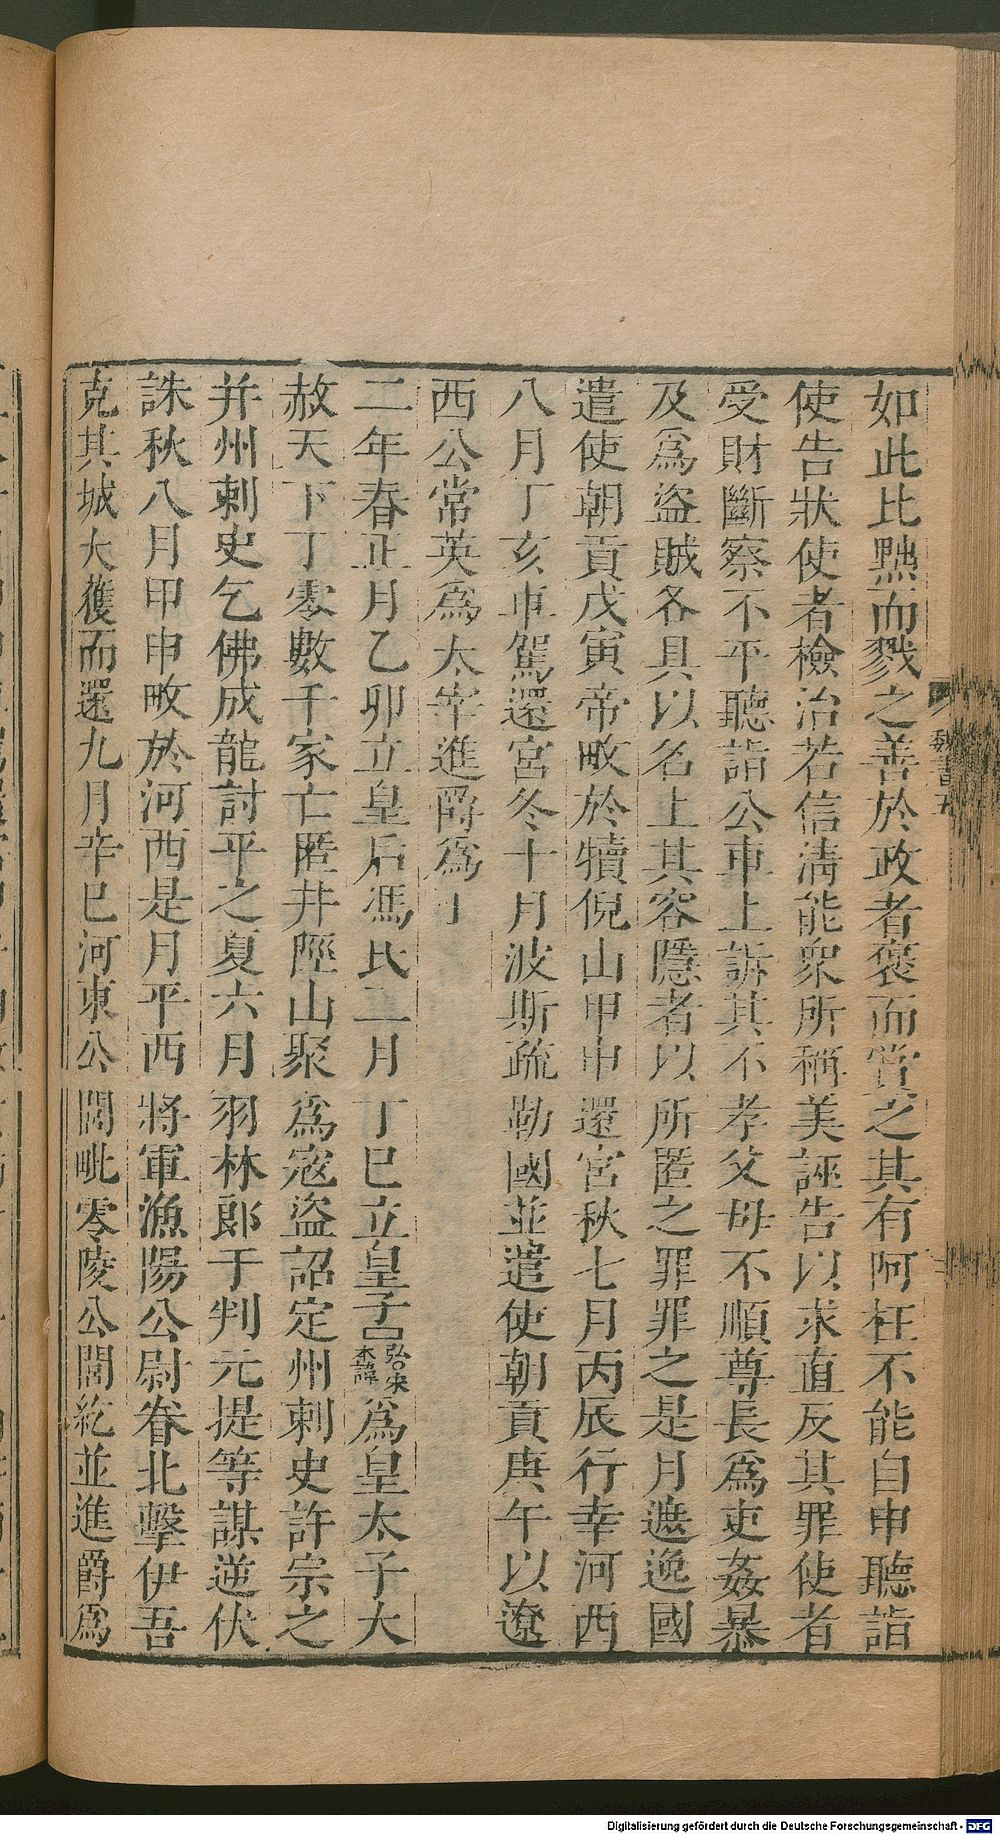 如此比黜而戮之善於政者褒而賞之其有阿枉不能自申聽詣
使告狀使者檢治若信淸能衆所稱美誣告以求直反其罪使者
受財斷察不平聽詣公車上訴其不孝父母不順尊長爲吏姦暴
及爲盜賊各具以名上其容隱者以所匿之罪罪之是月遮逸國
遣使朝貢戊寅帝畋於犢倪山甲申還宮秋七月丙辰行幸河西
八月丁亥車駕還宮冬十月波斯疏勒國並遣使朝貢庚午以遼
西公常英爲太宰進爵爲
二年春正月乙卯立皇后馮氏二月丁巳立皇子弘宋本諱爲皇太子大
赦天下丁零數千家亡匿井陘山聚爲寇盜詔定州刺史許宗之
并州刺史乞佛成龍討平之夏六月羽林郎于判元提等謀逆伏
誅秋八月甲申畋於河西是月平西將軍漁陽公尉眷北擊伊吾
克其城大獲而還九月辛巳河東公閭毗零陵公閭紇並進爵爲
魏書五
Digitalisierung gefördert durch die Deutsche Forschungsgemeinschaft - DFG